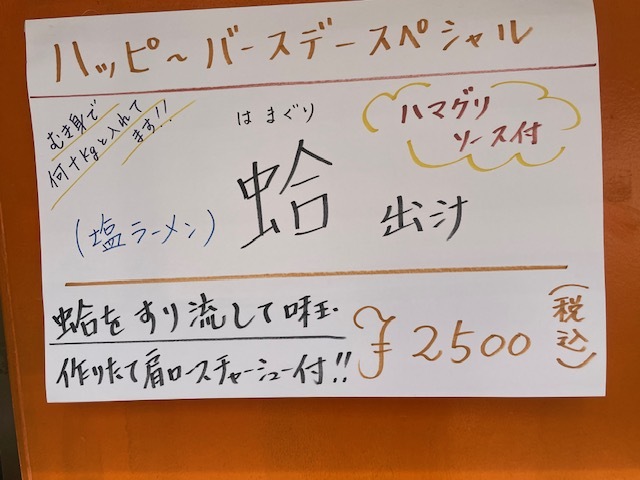 ハッピ～バースデースペシャル
むき身で
何十kgと入れて
ます!!
はまぐり
蛤 出汁
ハマグリ
ソース付
(塩ラーメン)
蛤をすり流して味玉・
作りたて肩ロースチャーシュー付!!
¥2500
(税込)